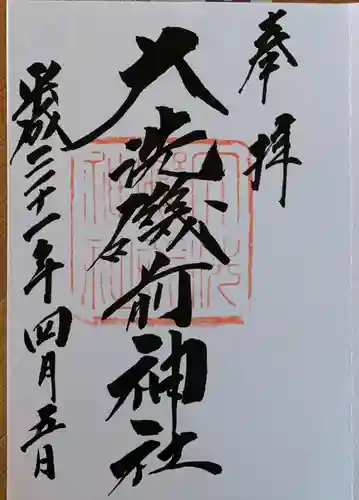 奉拝
大洗磯前神社
平成三十一年四月五日